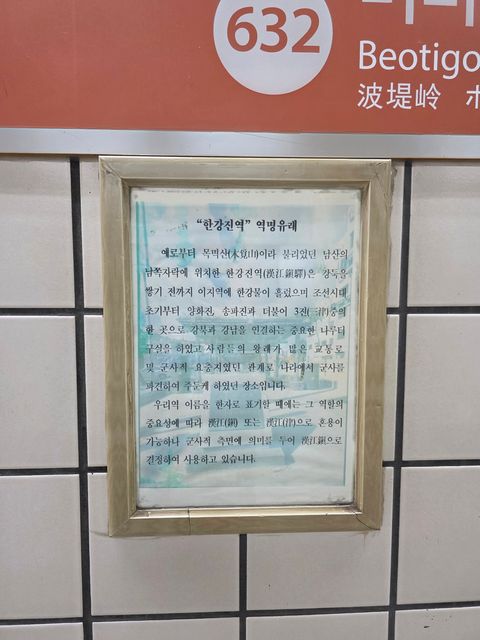 632
Beotigo
波堤岭
“한강진역” 역명유래
예로부터 목멱산(木覓山)이라 불리었던 남산의
남쪽자락에 위치한 한강진역(漢江鎭驛)은 강둑을
쌓기 전까지 이지역에 한강물이 흘렀으며 조선시대
초기부터 양화진, 송파진과 더불어 3진( 津)중의
한 곳으로 강북과 강남을 연결하는 중요한 나루터
구실을 하였고 사람들의 왕래가 많은 교통로
및 군사적 요충지였던 관계로 나라에서 군사를
파견하여 주둔케 하였던 장소입니다.
우리역 이름을 한자로 표기할 때에는 그 역할의
중요성에 따라 漢江(鎭) 또는 漢江(津)으로 혼용이
가능하나 군사적 측면에 의미를 두어 漢江鎭으로
결정하여 사용하고 있습니다.